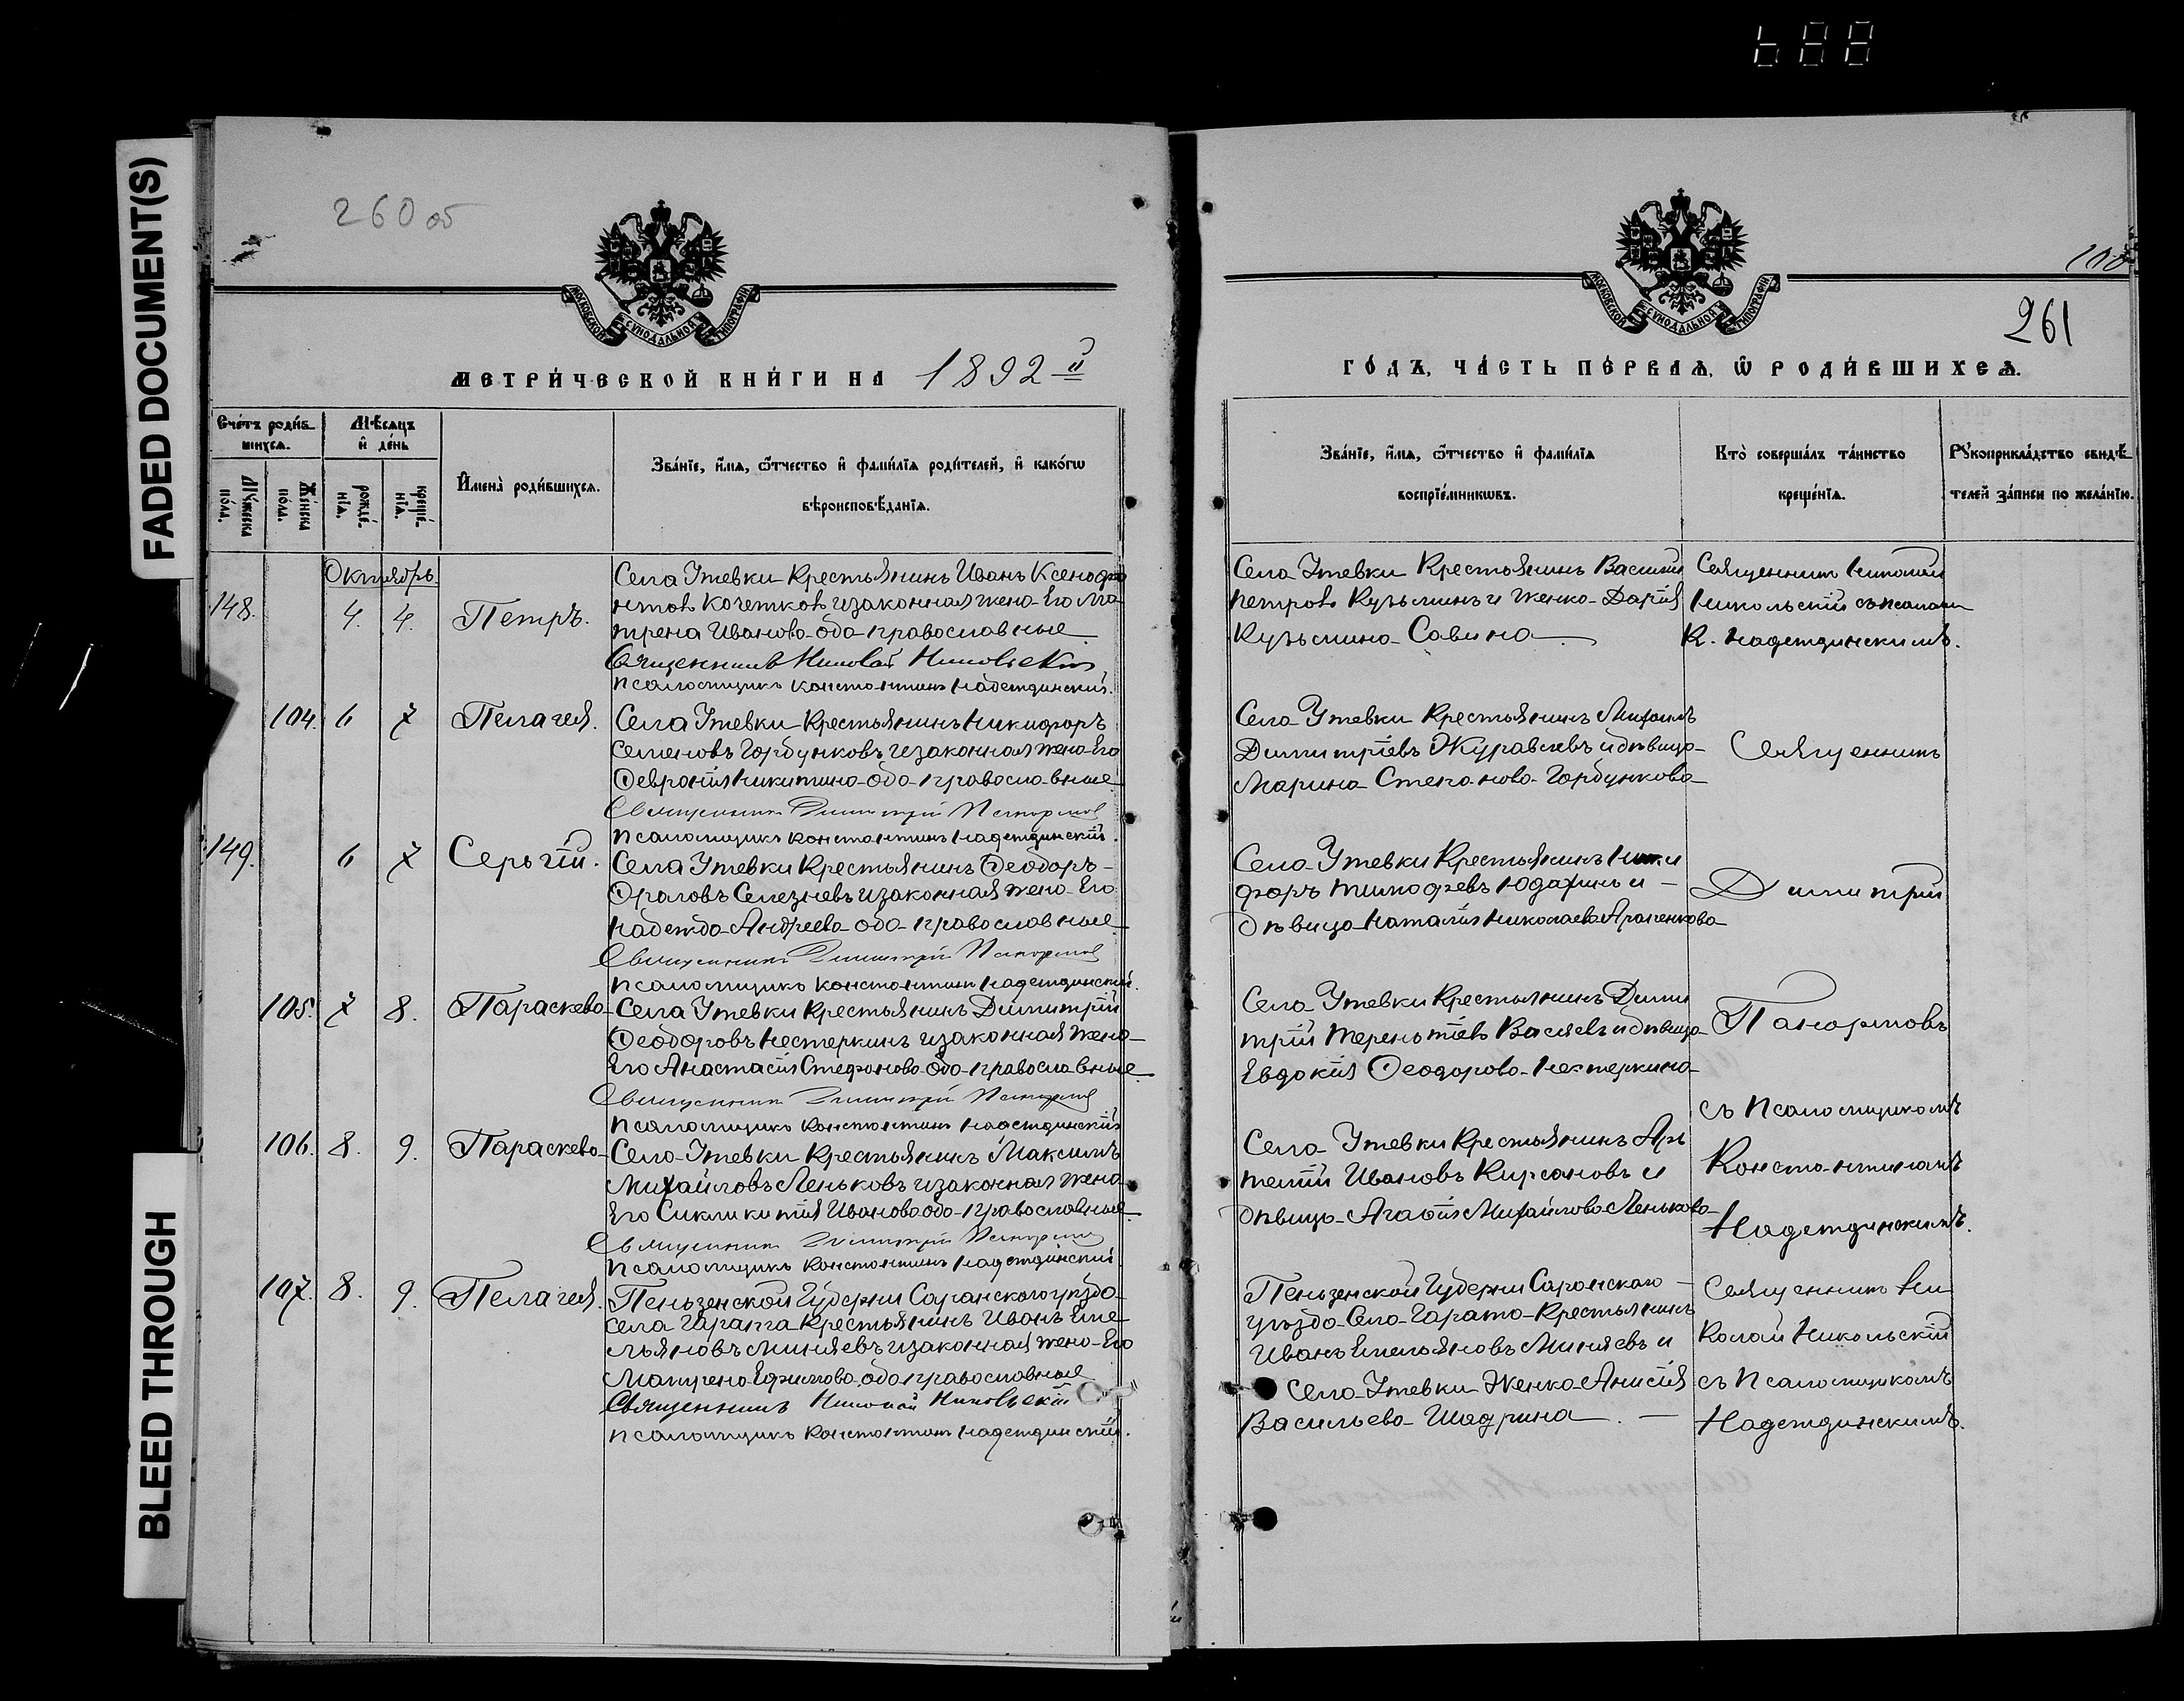 FADED DOCUMENT(S)
BLEED THROUGH
260 об
МОСКОВСКОЙ СѴНОДАЛЬНОЙ ТИПОГРАФІИ
МЕТРИ́ЧЕСКОЙ КНИ́ГИ НА 1892 й
Счётъ роди́в-
шихся.
Мѣ́сяцъ
и҆ де́нь
Мꙋ́жеска
по́ла.
Же́нска
по́ла.
рожде́-
нїѧ.
креще́-
нїѧ.
И҆мена̀ роди́вшихсѧ.
Зва́нїе, и҆́мѧ, ѻ҆́тчество и҆ фами́лїѧ роди́телей, и҆ како́гѡ
вѣроисповѣ́данїѧ.
Октябрь.
148. 4. 4. Петръ.
Села Утевки Крестьянинъ Иванъ Ксенофо
нтовъ Кочетковъ и законная жена Его Ма
трена Иванова оба православные
Священникъ Николай Никольскій
Псаломщикъ Константинъ Надеждинскій.
104. 6 7 Пелагея.
Села Утевки Крестьянинъ Никифоръ
Семеновъ Горбунковъ и законная жена Его
Февронія Никитина оба православные
Священникъ Димитрій Панормов
Псаломщикъ Константинъ Надеждинскій.
149. 6 7 Сергій.
Села Утевки Крестьянинъ Феодоръ
Фроловъ Селезневъ и законная жена Его
Надежда Андреева оба православные
Священникъ Димитрій Панормов
Псаломщикъ Константинъ Надеждинскій.
105. 7 8. Параскева
Села Утевки Крестьянинъ Димитрій
Феодоровъ Нестеркинъ и законная жена
Его Анастасія Стефанова оба православные.
Священникъ Димитрій Панормов
Псаломщикъ Константинъ Надеждинскій
106. 8. 9. Параскева
Села Утевки Крестьянинъ Максимъ
Михайловъ Леньковъ и законная жена
Его Сикликитія Иванова оба православные.
Священникъ Димитрій Панормов
Псаломщикъ Константинъ Надеждинскій
107. 8. 9. Пелагея.
Пензенской Губерни Саранскаго уѣзда
села Гарата Крестьянинъ Иванъ Еме
льяновъ Миняевъ и законная жена Его
Матрена Ефимова оба православные
Священникъ Николай Никольскій
Псаломщикъ Константинъ Надеждинскій.
261
МОСКОВСКОЙ СѴНОДАЛЬНОЙ ТИПОГРАФІИ
ГО́ДЪ, ЧА́СТЬ ПЕ́РВАѦ, Ѿ РОДИ́ВШИХСѦ.
Зва́нїе, и҆́мѧ, ѻ҆́тчество и҆ фами́лїѧ
воспрїе́мникѡвъ.
Кто̀ соверша́лъ та́инство
креще́нїѧ.
Рꙋкоприкла́дство свидѣ́-
телей за́писи по жела́нїю.
Села Утевки Крестьянинъ Василій
Петровъ Кузьминъ и Женка Дарія
Кузьмина Савина
Священникъ Николай
Никольскій съ псаломщ
К. Надеждинскимъ.
Села Утевки Крестьянинъ Михаилъ
Димитріевъ Журавлевъ и дѣвица
Марина Степанова Горбункова
Села Утевки Крестьянинъ Ники
форъ Тимофеевъ Юдахинъ и
дѣвица Наталія Николаева
Села Утевки Крестьянинъ Дими
трій Терентіевъ и дѣвица
Евдокія Феодорова Нестеркина
Села Утевки Крестьянинъ Ар
темій Ивановъ Кирсановъ и
дѣвица Агафія Михайлова Ленькова
Священникъ
Димитрій
Панормовъ
съ Псаломщикомъ
Константиномъ
Надеждинскимъ.
Пензенской Губерни Саранскаго
уѣзда Села Гарата Крестьянинъ
Иванъ Емельяновъ Миняевъ и
Села Утевки Женка Анисія
Васильева Шадрина.
Священникъ Ни
колай Никольскій
съ Псаломщикомъ
Надеждинскимъ.